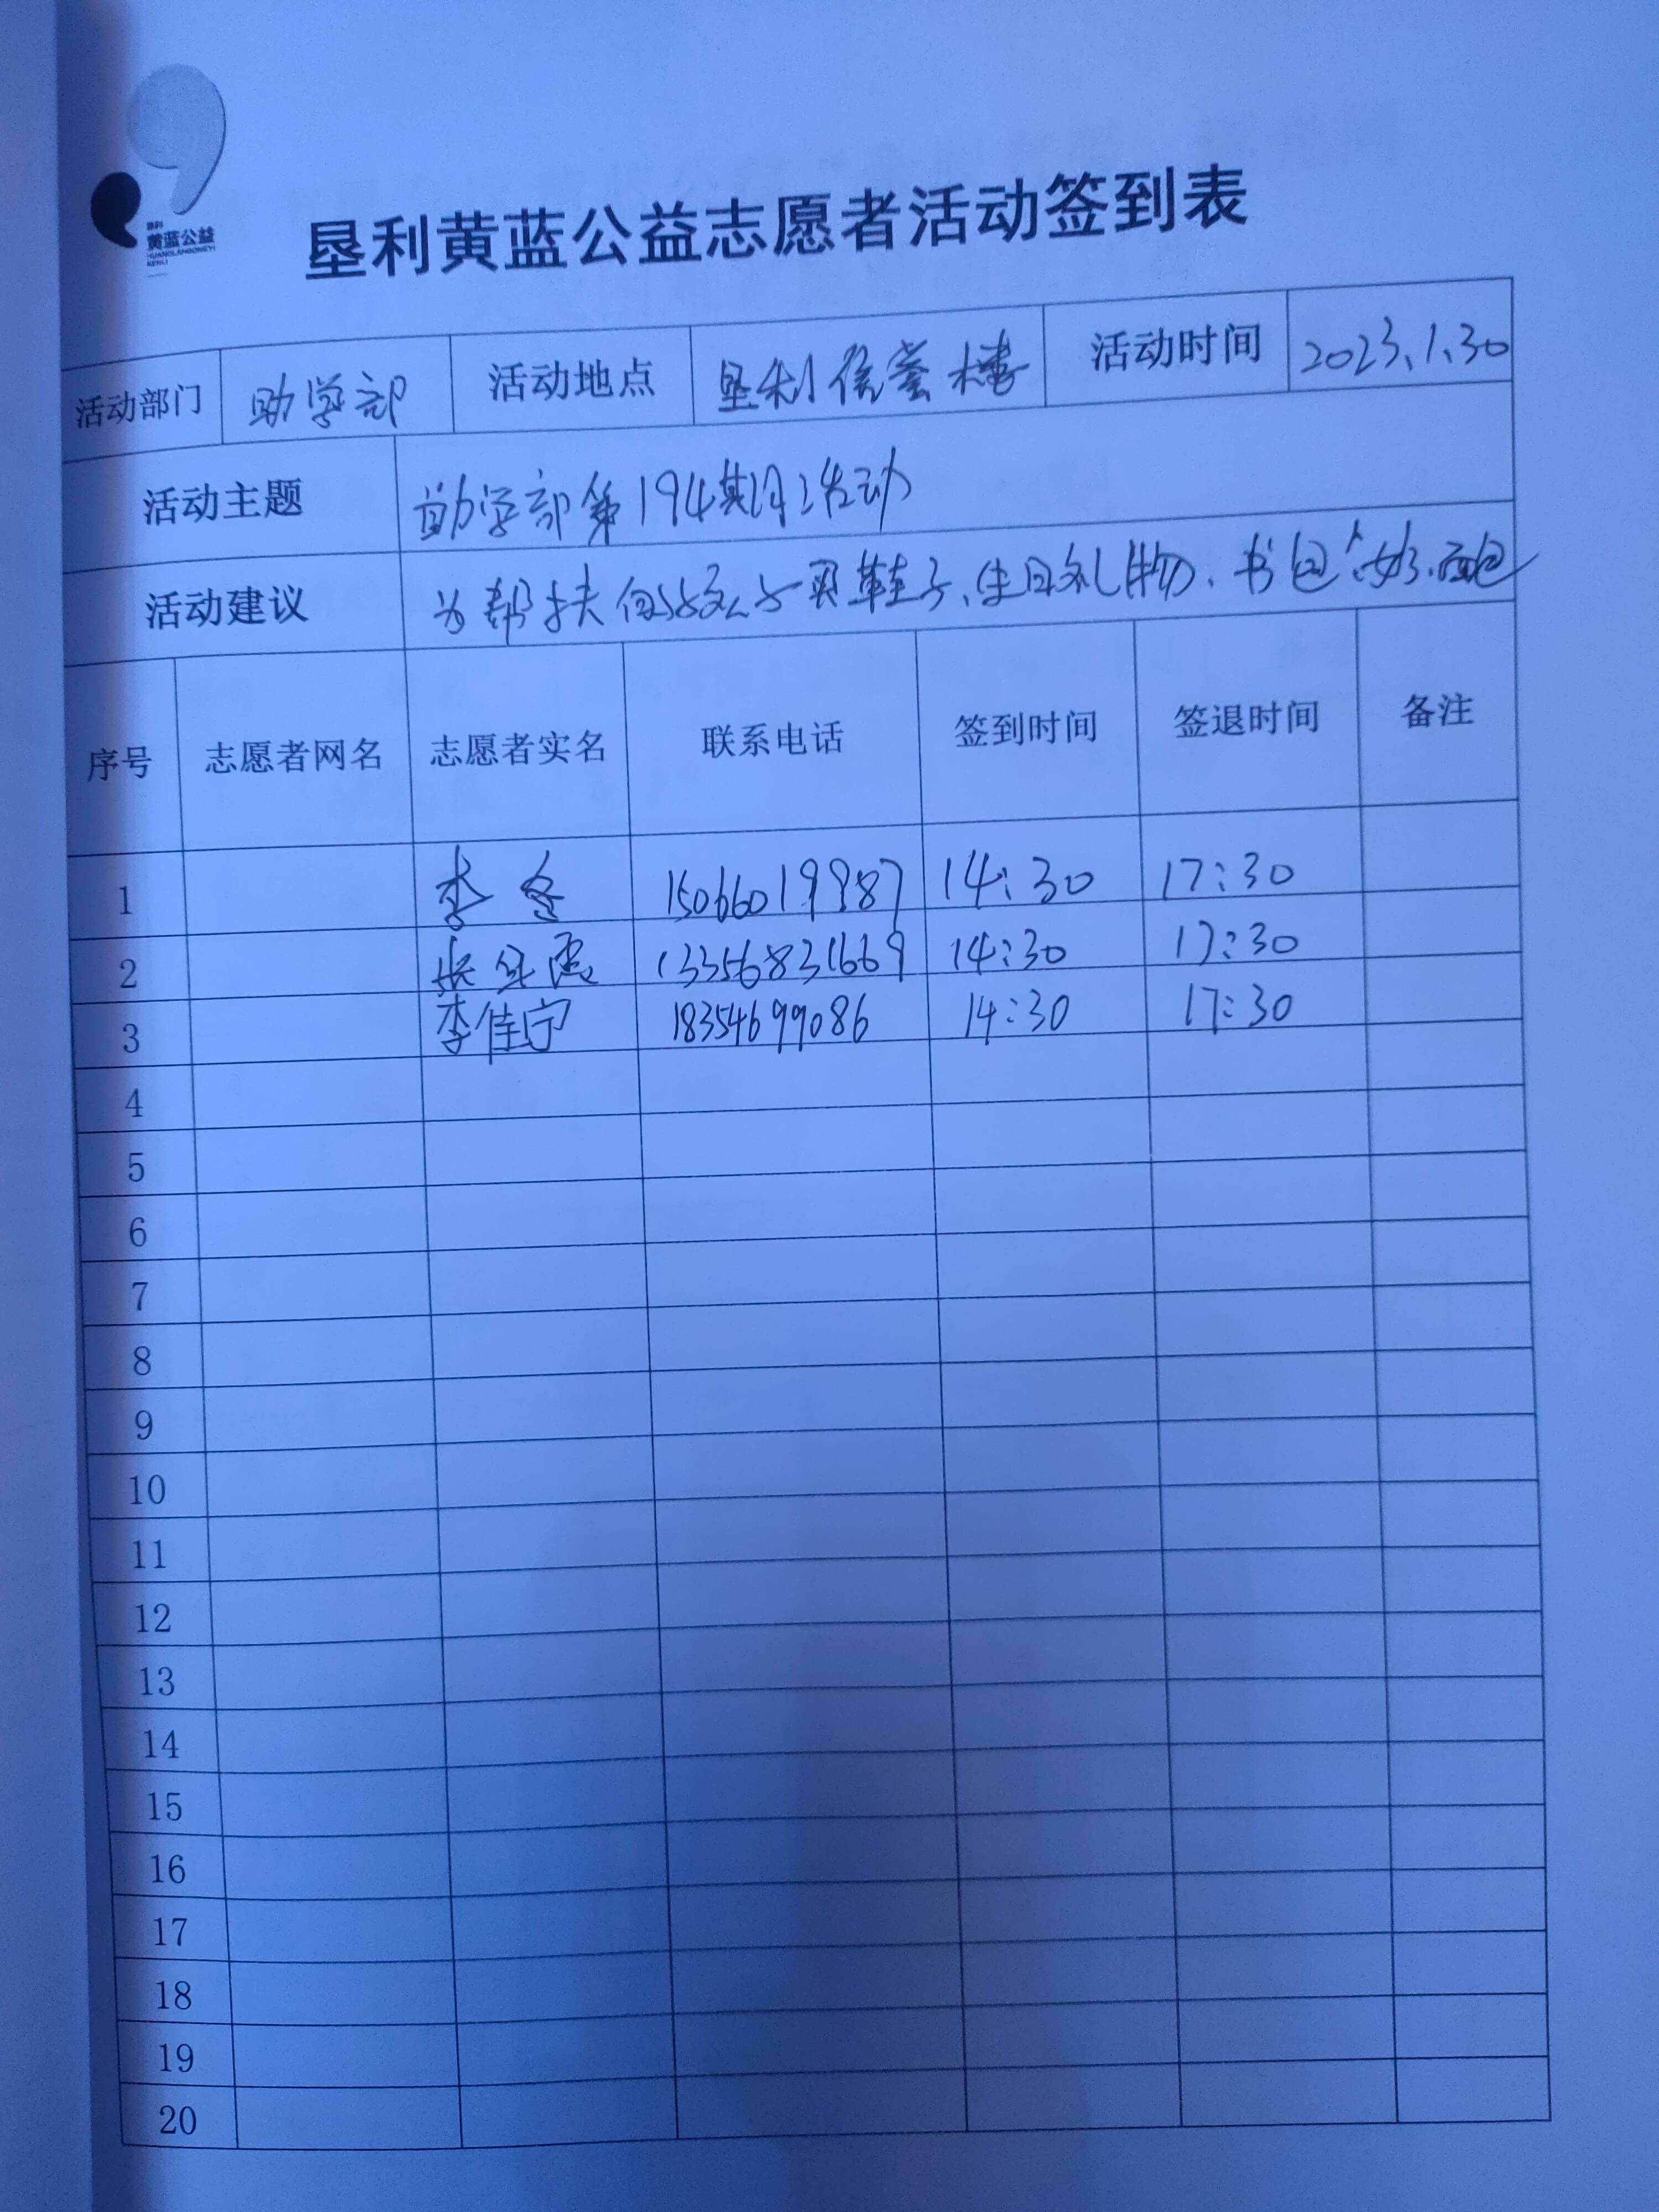 垦利
黄蓝公益
HUANGLANGONGYI
KENLI
垦利黄蓝公益志愿者活动签到表
活动部门 助学部 活动地点 垦利信誉楼 活动时间 2023.1.30
活动主题 助学部第194期月活动
活动建议 为帮扶 买鞋子、生日礼物、书包、奶、面包
序号 志愿者网名 志愿者实名 联系电话 签到时间 签退时间 备注
1 李 15066019987 14:30 17:30
2 张 霞 13356831669 14:30 17:30
3 李佳宁 18354699086 14:30 17:30
4
5
6
7
8
9
10
11
12
13
14
15
16
17
18
19
20